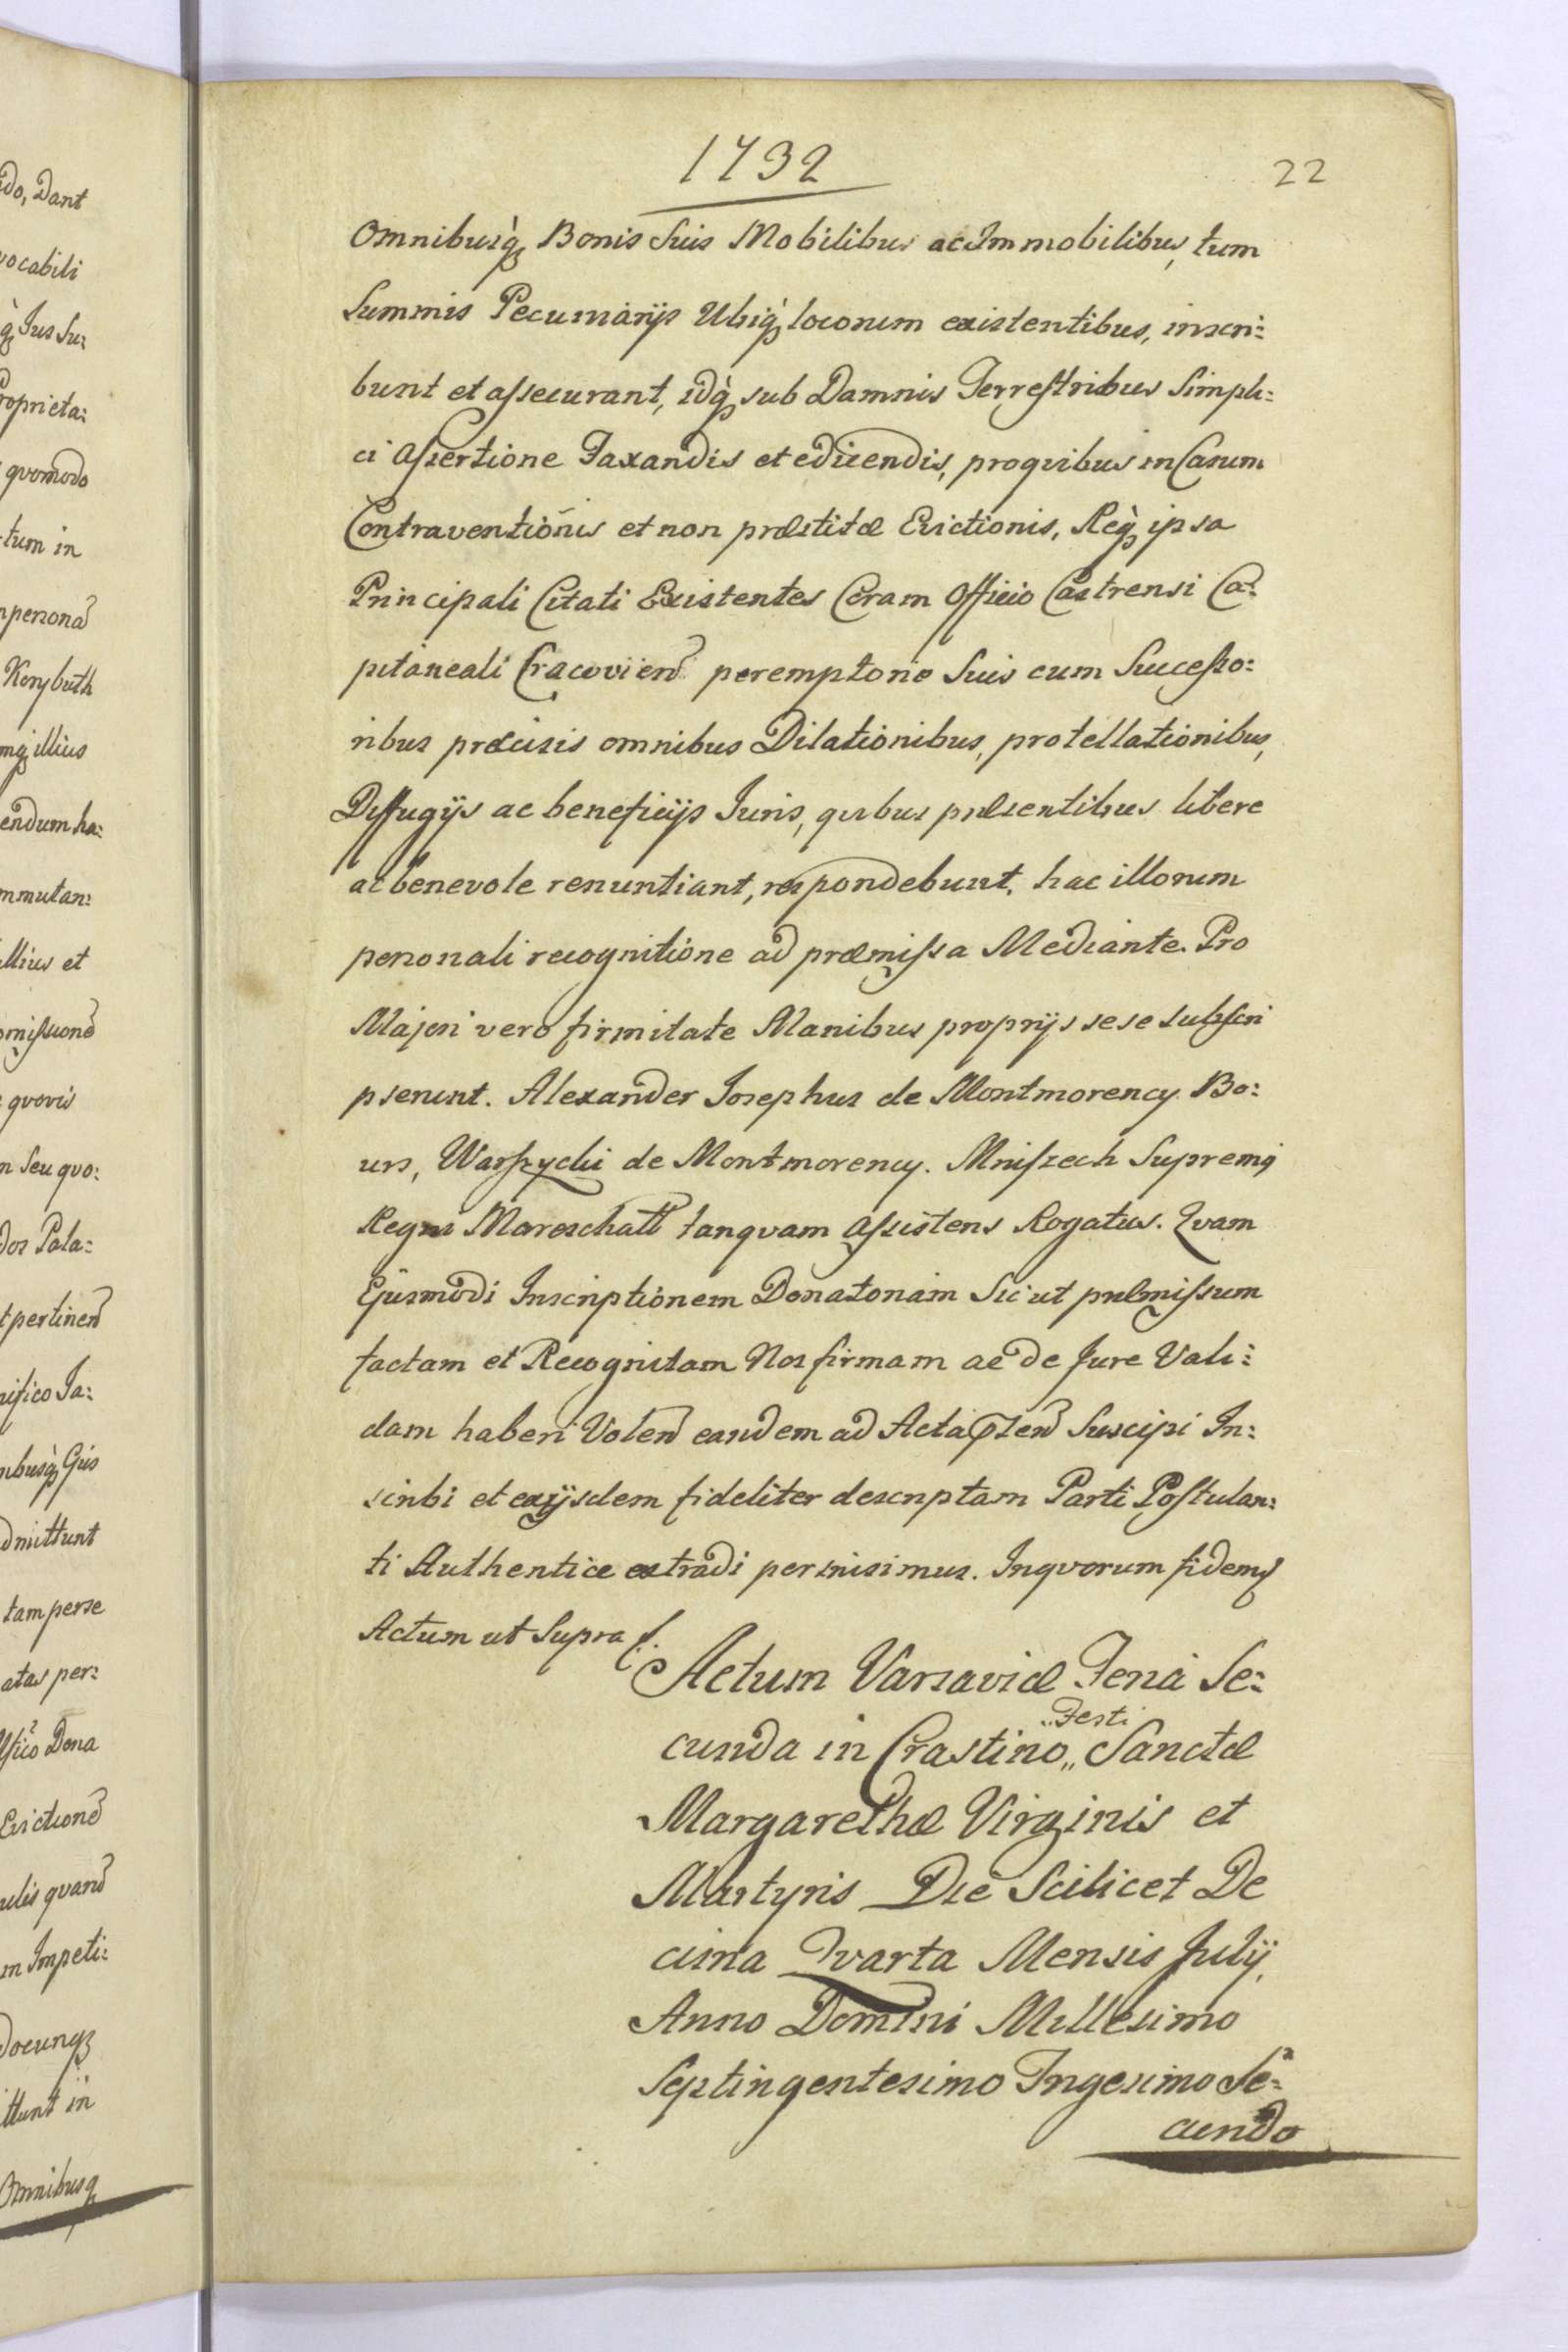 do, Dant
vocabili
q; Jus Su:
Proprieta:
quomodo
tum in
Korybuth
mq; illius
endum ha:
mmutan:
illius et
quovis
n Seu quo:
dos Pala:
nifico Ja:
nbusq; Ejus
dmittunt
tam perse
atas per:
Dona
m Impeti:
ittunt in
Omnibusq
1732
22
Omnibusq; Bonis Suis Mobilibus ac Immobilibus, tum
Summis Pecuniarijs Ubiq; locorum existentibus, inscri:
bunt et assecurant, idq; sub Damnis Terrestribus Simpli:
ci assertione Taxandis et edicendis, proquibus in Casum
Contraventionis et non præstitæ Evictionis, Req; ipsa
Principali Citati Existentes Coram Officio Castrensi Ca:
pitaneali Cracovien peremptorie Suis cum Successo:
ribus præcisis omnibus Dilationibus, protellationibus,
Diffugijs ac beneficijs Iuris, quibus præsentibus libere
ac benevole renuntiant, respondebunt, hac illorum
personali recognitione ad præmissa Mediante. Pro
Majori vero firmitate Manibus proprijs sese subscri
pserunt. Alexander Josephus de Montmorency Bo:
urs, Warszycki de Montmorency. Mniszech Supremq
Regni Mareschall tanquam assistens Rogatus. Quam
Ejusmodi Inscriptionem Donatoriam Sicut præmissum
factam et Recognitam Nos firmam ac de Jure Vali:
dam haberi Volen eandem ad Acta pten Suscipi In:
scribi et exijsdem fideliter descriptam Parti Postulan:
ti Authentice extradi permisimus. Inquorum fidemq
Actum ut Supra
Actum Varsaviæ Feria Se:
cunda in Crastino,, Festi Sanctæ
Margarethæ Virginis et
Martyris Die Scilicet De
cima Quarta Mensis Julij,
Anno Domini Millesimo
Septingentesimo Trigesimo Se:
cundo